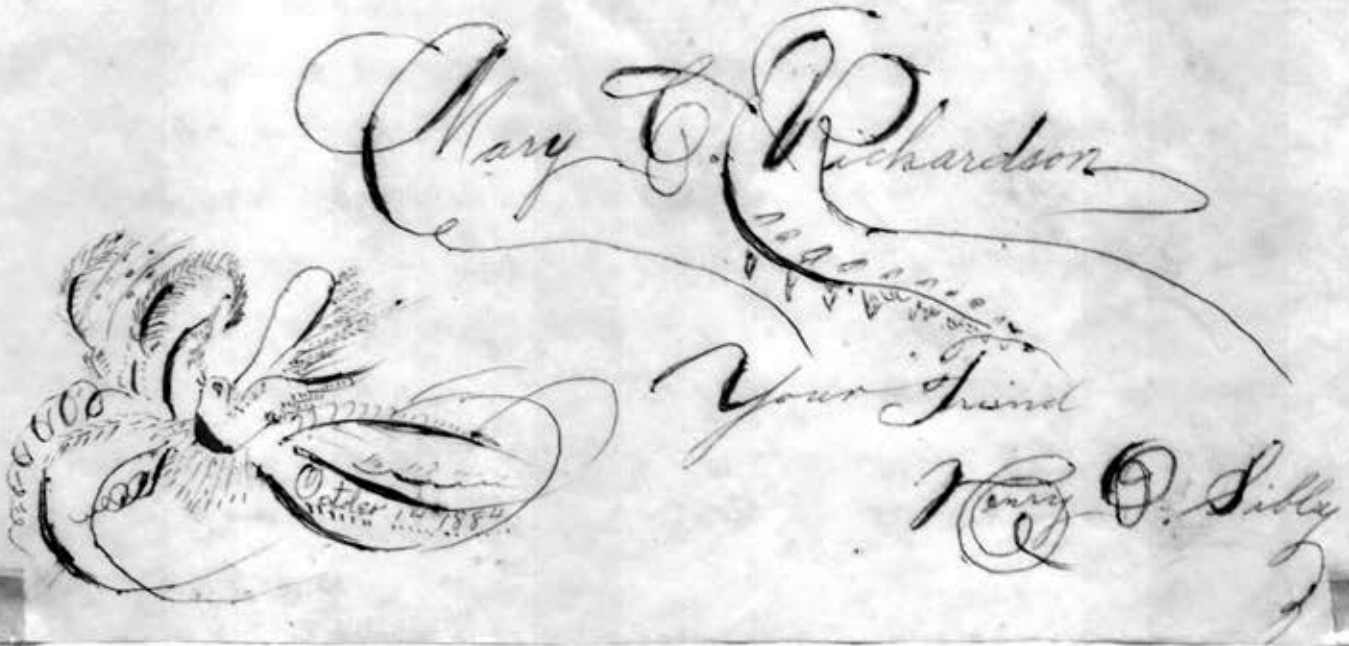 Mary C. Richardson
Your Friend
Henry O. Sibley
October 14 1884